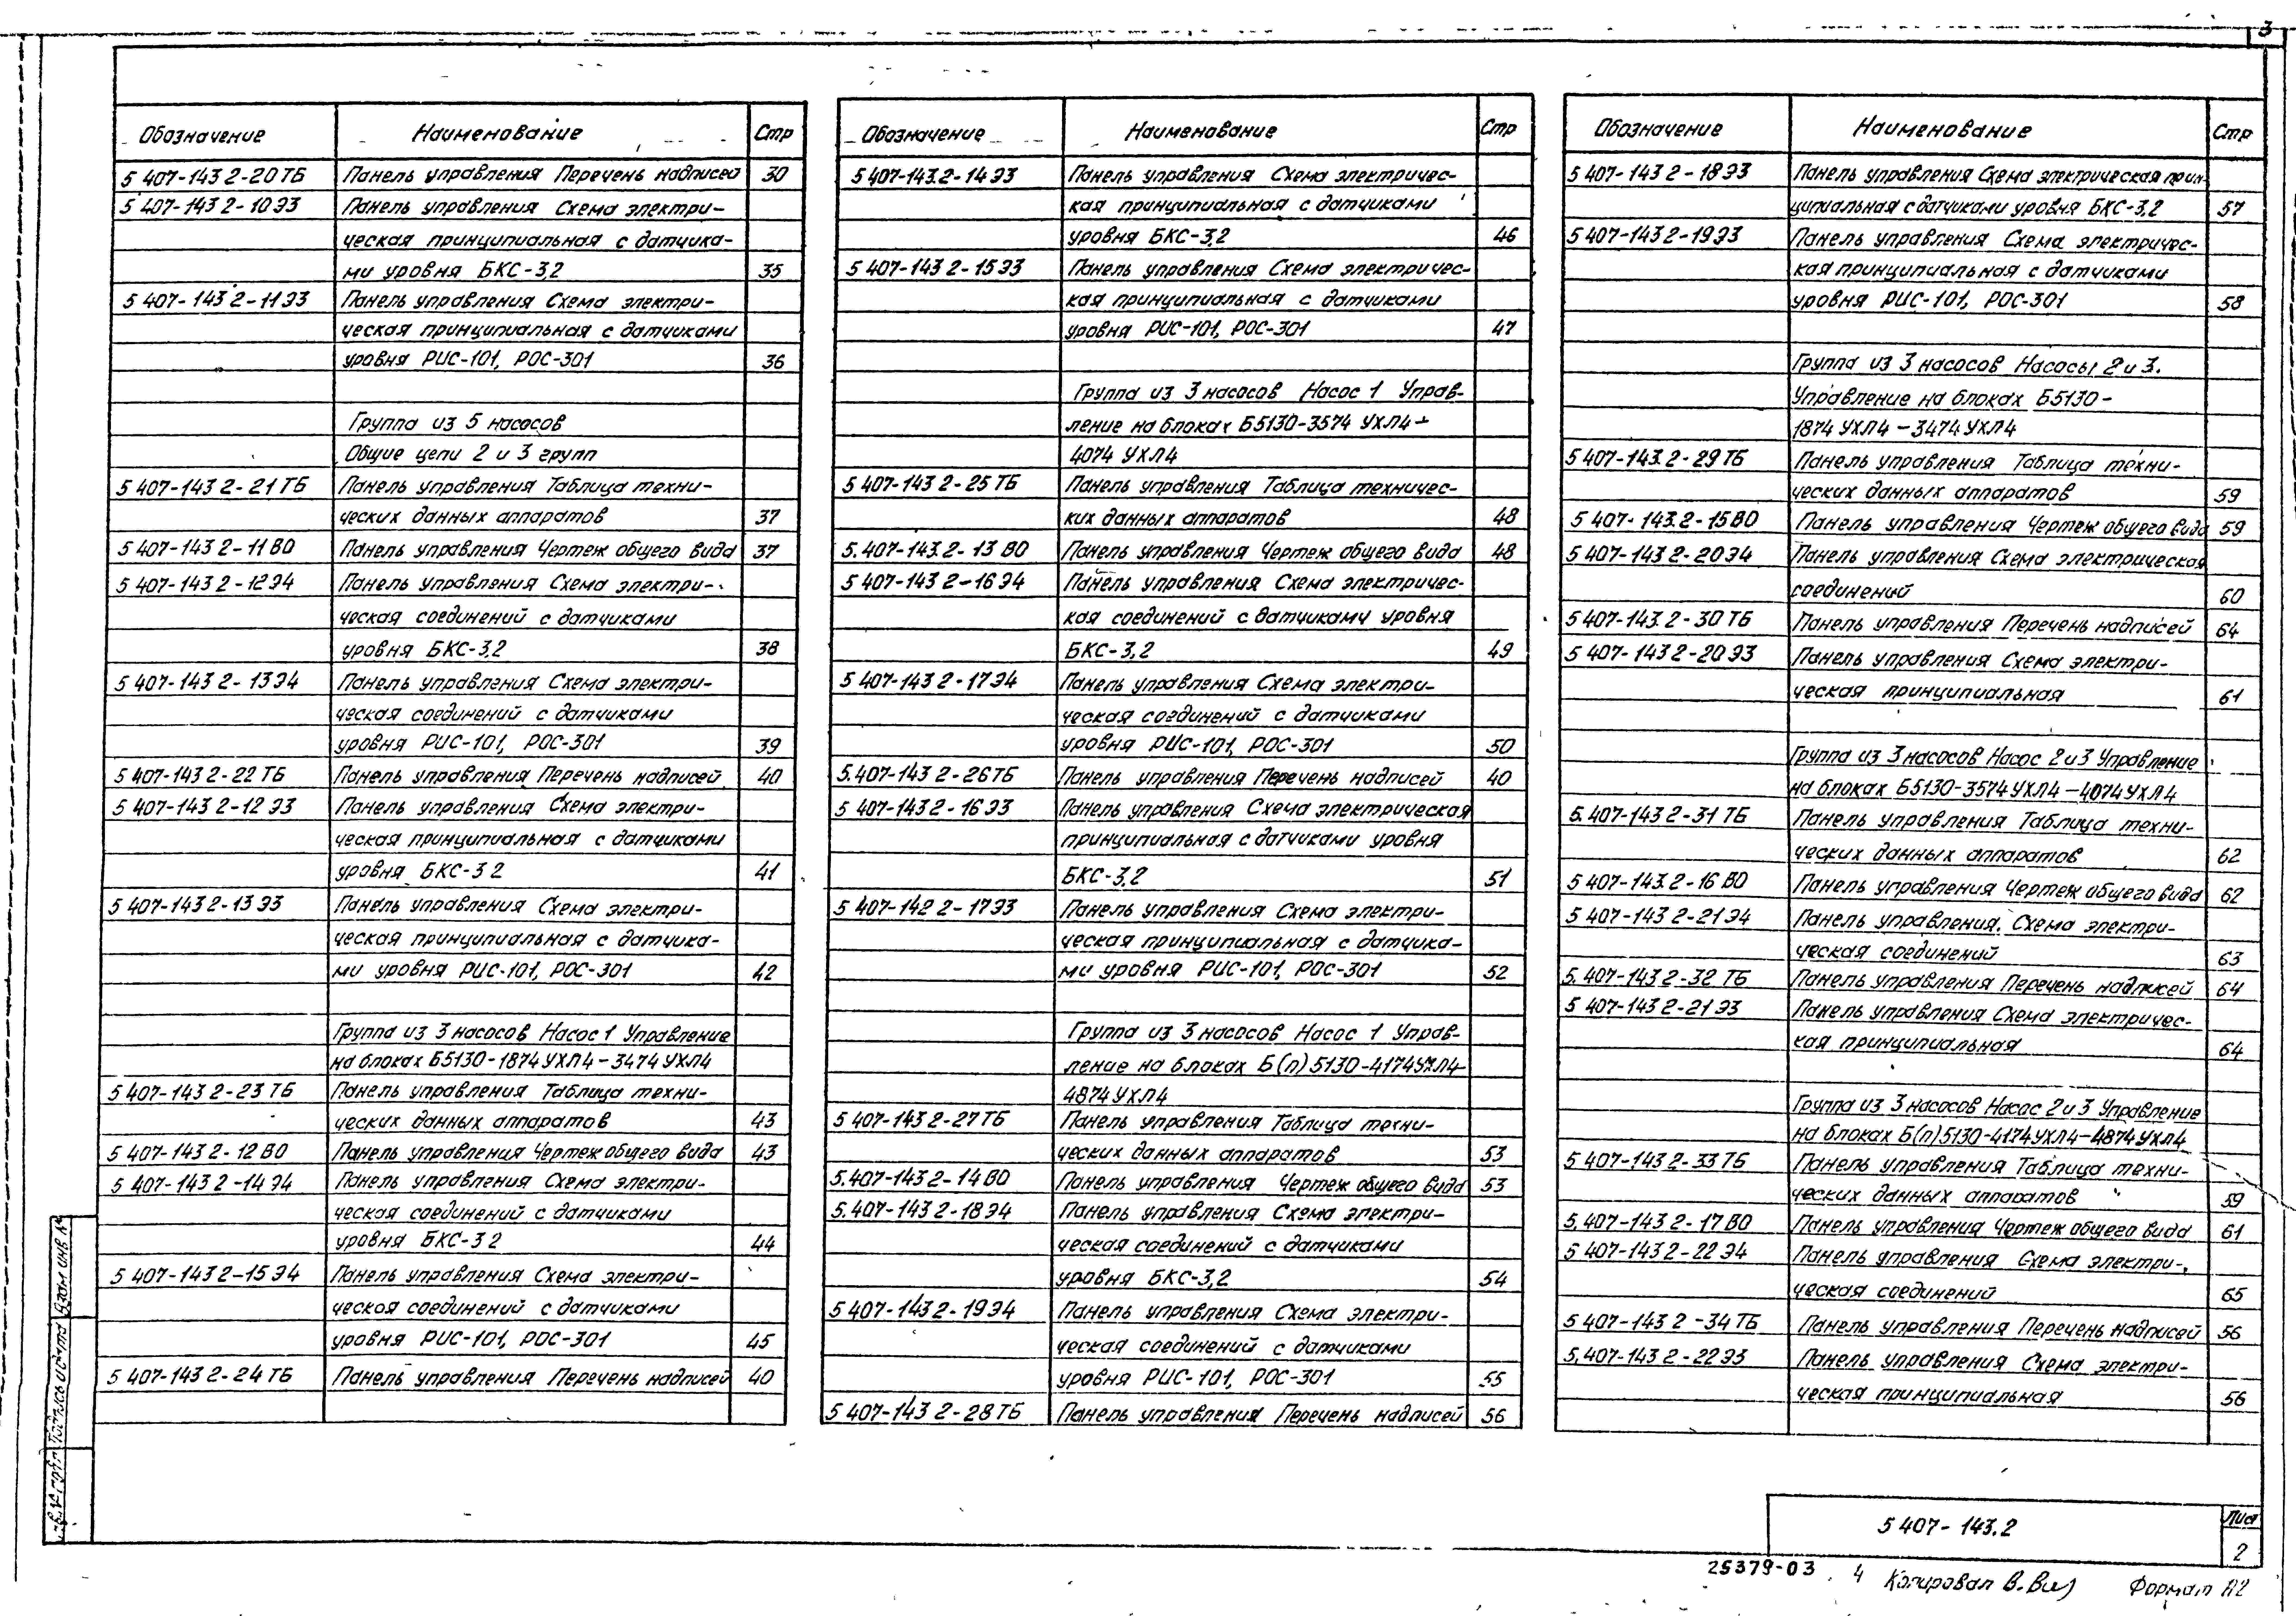 3
Обозначение Наименование Стр
5 407-143 2-20 ТБ Панель управления Перечень надписей 30
5 407-143 2-10 Э3 Панель управления Схема электри-
ческая принципиальная с датчика-
ми уровня БКС-3,2 35
5 407-143 2-11 Э3 Панель управления Схема электри-
ческая принципиальная с датчиками
уровня РИС-101, РОС-301 36
Группа из 5 насосов
Общие цепи 2 и 3 групп
5 407-143 2-21 ТБ Панель управления Таблица техни-
ческих данных аппаратов 37
5 407-143 2-11 ВО Панель управления Чертеж общего вида 37
5 407-143 2-12 Э4 Панель управления Схема электри-
ческая соединений с датчиками
уровня БКС-3,2 38
5 407-143 2-13 Э4 Панель управления Схема электри-
ческая соединений с датчиками
уровня РИС-101, РОС-301 39
5 407-143 2-22 ТБ Панель управления Перечень надписей 40
5 407-143 2-12 Э3 Панель управления Схема электри-
ческая принципиальная с датчиками
уровня БКС-3 2 41
5 407-143 2-13 Э3 Панель управления Схема электри-
ческая принципиальная с датчика-
ми уровня РИС-101, РОС-301 42
Группа из 3 насосов Насос 1 Управление
на блоках Б5130-1874 УХЛ4-3474 УХЛ4
5 407-143 2-23 ТБ Панель управления Таблица техни-
ческих данных аппаратов 43
5 407-143 2-12 ВО Панель управления Чертеж общего вида 43
5 407-143 2-14 Э4 Панель управления Схема электри-
ческая соединений с датчиками
уровня БКС-3 2 44
5 407-143 2-15 Э4 Панель управления Схема электри-
ческая соединений с датчиками
уровня РИС-101, РОС-301 45
5 407-143 2-24 ТБ Панель управления Перечень надписей 40
Обозначение Наименование Стр
5 407-143.2-14 Э3 Панель управления Схема электричес-
кая принципиальная с датчиками
уровня БКС-3,2 46
5 407-143 2-15 Э3 Панель управления Схема электричес-
кая принципиальная с датчиками
уровня РИС-101, РОС-301 47
Группа из 3 насосов Насос 1 Управ-
ление на блоках Б5130-3574 УХЛ4-
4074 УХЛ4
5 407-143 2-25 ТБ Панель управления Таблица техничес-
ких данных аппаратов 48
5. 407-143.2-13 ВО Панель управления Чертеж общего вида 48
5 407-143 2-16 Э4 Панель управления Схема электричес-
кая соединений с датчиками уровня
БКС-3,2 49
5 407-143 2-17 Э4 Панель управления Схема электри-
ческая соединений с датчиками
уровня РИС-101, РОС-301 50
5.407-143 2-26 ТБ Панель управления Перечень надписей 40
5 407-143 2-16 Э3 Панель управления Схема электрическая
принципиальная с датчиками уровня
БКС-3,2 51
5 407-142 2-17 Э3 Панель управления Схема электри-
ческая принципиальная с датчика-
ми уровня РИС-101, РОС-301 52
Группа из 3 насосов Насос 1 Управ-
ление на блоках Б(п) 5130-4174 УХЛ4-
4874 УХЛ4
5 407-143 2-27 ТБ Панель управления Таблица техни-
ческих данных аппаратов 53
5.407-143 2-14 ВО Панель управления Чертеж общего вида 53
5.407-143 2-18 Э4 Панель управления Схема электри-
ческая соединений с датчиками
уровня БКС-3,2 54
5 407-143 2-19 Э4 Панель управления Схема электри-
ческая соединений с датчиками
уровня РИС-101, РОС-301 55
5 407-143 2-28 ТБ Панель управления Перечень надписей 56
Обозначение Наименование Стр
5 407-143 2-18 Э3 Панель управления Схема электрическая прин-
ципиальная с датчиками уровня БКС-3,2 57
5 407-143 2-19 Э3 Панель управления Схема электричес-
кая принципиальная с датчиками
уровня РИС-101, РОС-301 58
Группа из 3 насосов Насосы 2 и 3.
Управление на блоках Б5130-
1874 УХЛ4-3474 УХЛ4
5 407-143.2-29 ТБ Панель управления Таблица техни-
ческих данных аппаратов 59
5 407-143.2-15 ВО Панель управления Чертеж общего вида 59
5 407-143 2-20 Э4 Панель управления Схема электрическая
соединений 60
5 407-143.2-30 ТБ Панель управления Перечень надписей 64
5 407-143 2-20 Э3 Панель управления Схема электри-
ческая принципиальная 61
Группа из 3 насосов Насос 2 и 3 Управление
на блоках Б5130-3574 УХЛ4-4074 УХЛ4
5. 407-143 2-31 ТБ Панель управления Таблица техни-
ческих данных аппаратов 62
5 407-143.2-16 ВО Панель управления Чертеж общего вида 62
5 407-143 2-21 Э4 Панель управления. Схема электри-
ческая соединений 63
5. 407-143 2-32 ТБ Панель управления Перечень надписей 64
5 407-143 2-21 Э3 Панель управления Схема электричес-
кая принципиальная 64
Группа из 3 насосов Насос 2 и 3 Управление
на блоках Б(п)5130-4174 УХЛ4-4874 УХЛ4
5 407-143 2-33 ТБ Панель управления Таблица техни-
ческих данных аппаратов 59
5.407-143 2-17 ВО Панель управления Чертеж общего вида 61
5 407-143 2-22 Э4 Панель управления Схема электри-
ческая соединений 65
5 407-143 2-34 ТБ Панель управления Перечень надписей 56
5.407-143 2-22 Э3 Панель управления Схема электри-
ческая принципиальная 56
Взам инв №
Подпись и дата
5 407-143.2
Лист
2
25379-03 4 Копировал Формат А2